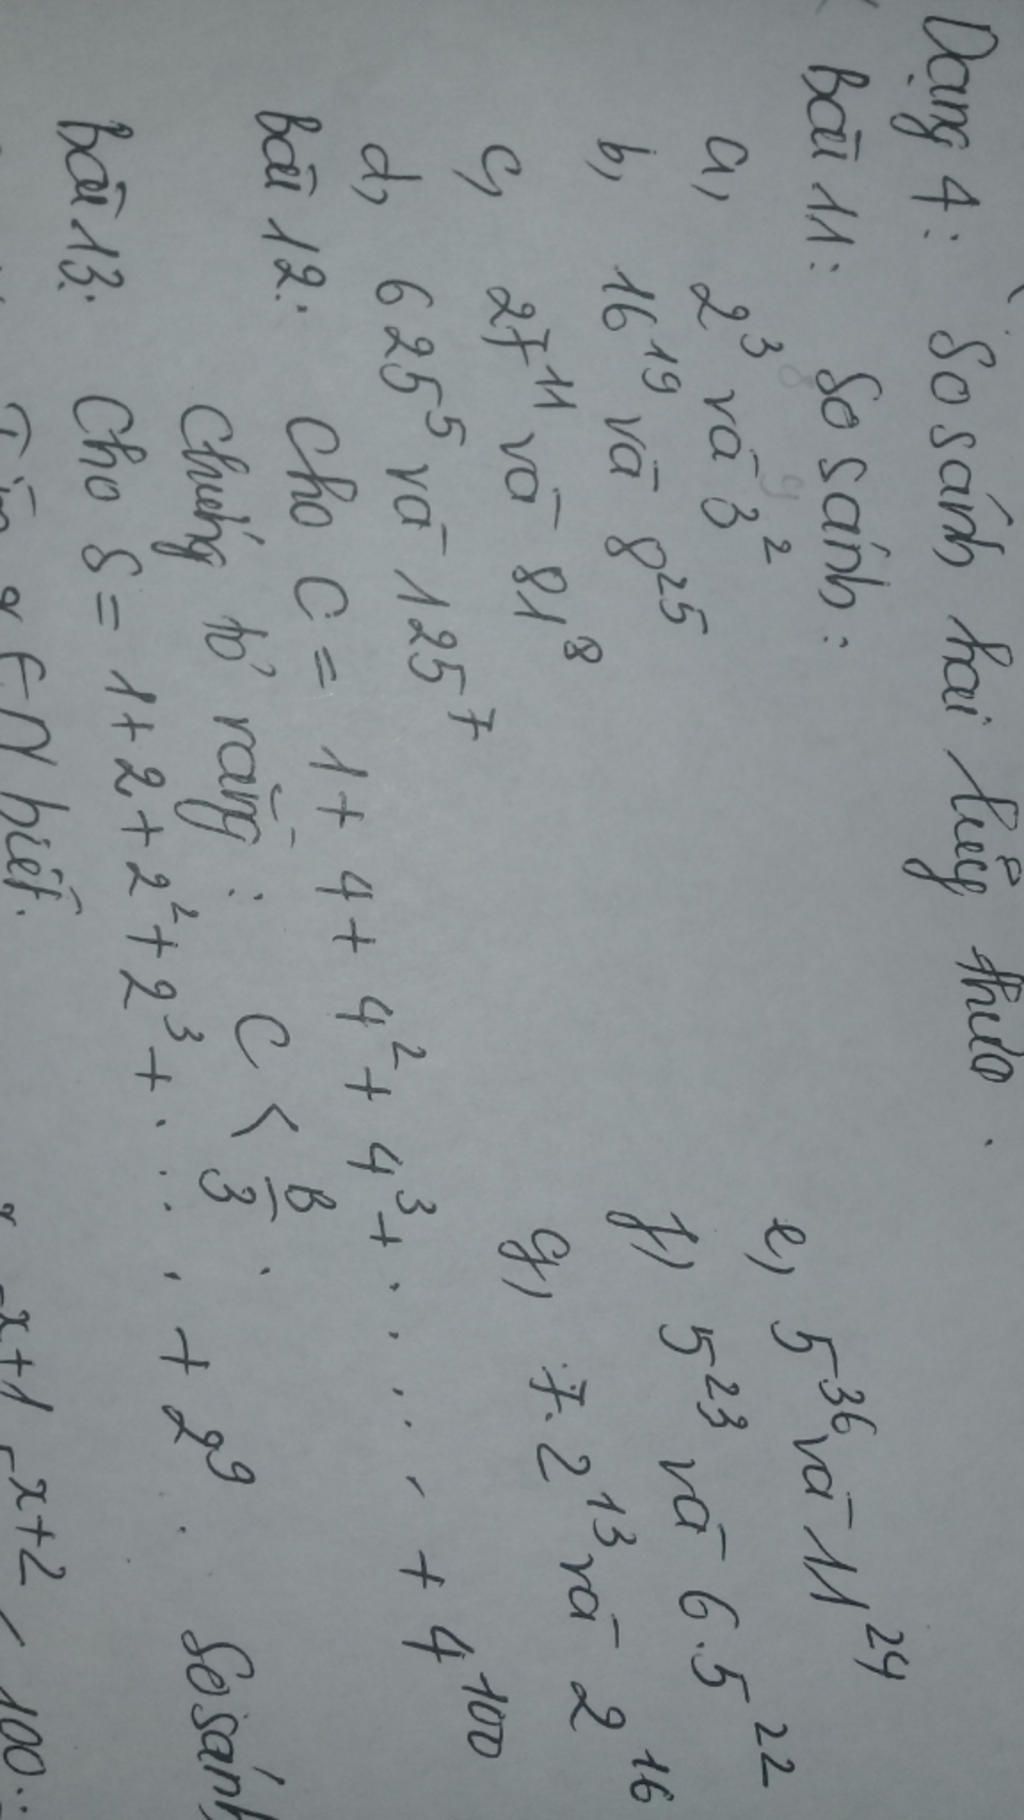 Dạng 4: So sánh hai luỹ thừa.
Bài 11: So sánh:
a, 2³ và 3²
b, 16¹⁹ và 8²⁵
c, 27¹¹ và 81⁸
d, 625⁵ và 125⁷
e, 5³⁶ và 11²⁴
f, 5²³ và 6.5²²
g, 7.2¹³ và 2¹⁶
Bài 12: Cho C = 1 + 4 + 4² + 4³ + ....... + 4¹⁰⁰
Chứng tỏ rằng: C < B/3.
Bài 13: Cho S = 1 + 2 + 2² + 2³ + ..... + 2⁹. So sánh
x ∈ N biết.
x+1 x+2 100